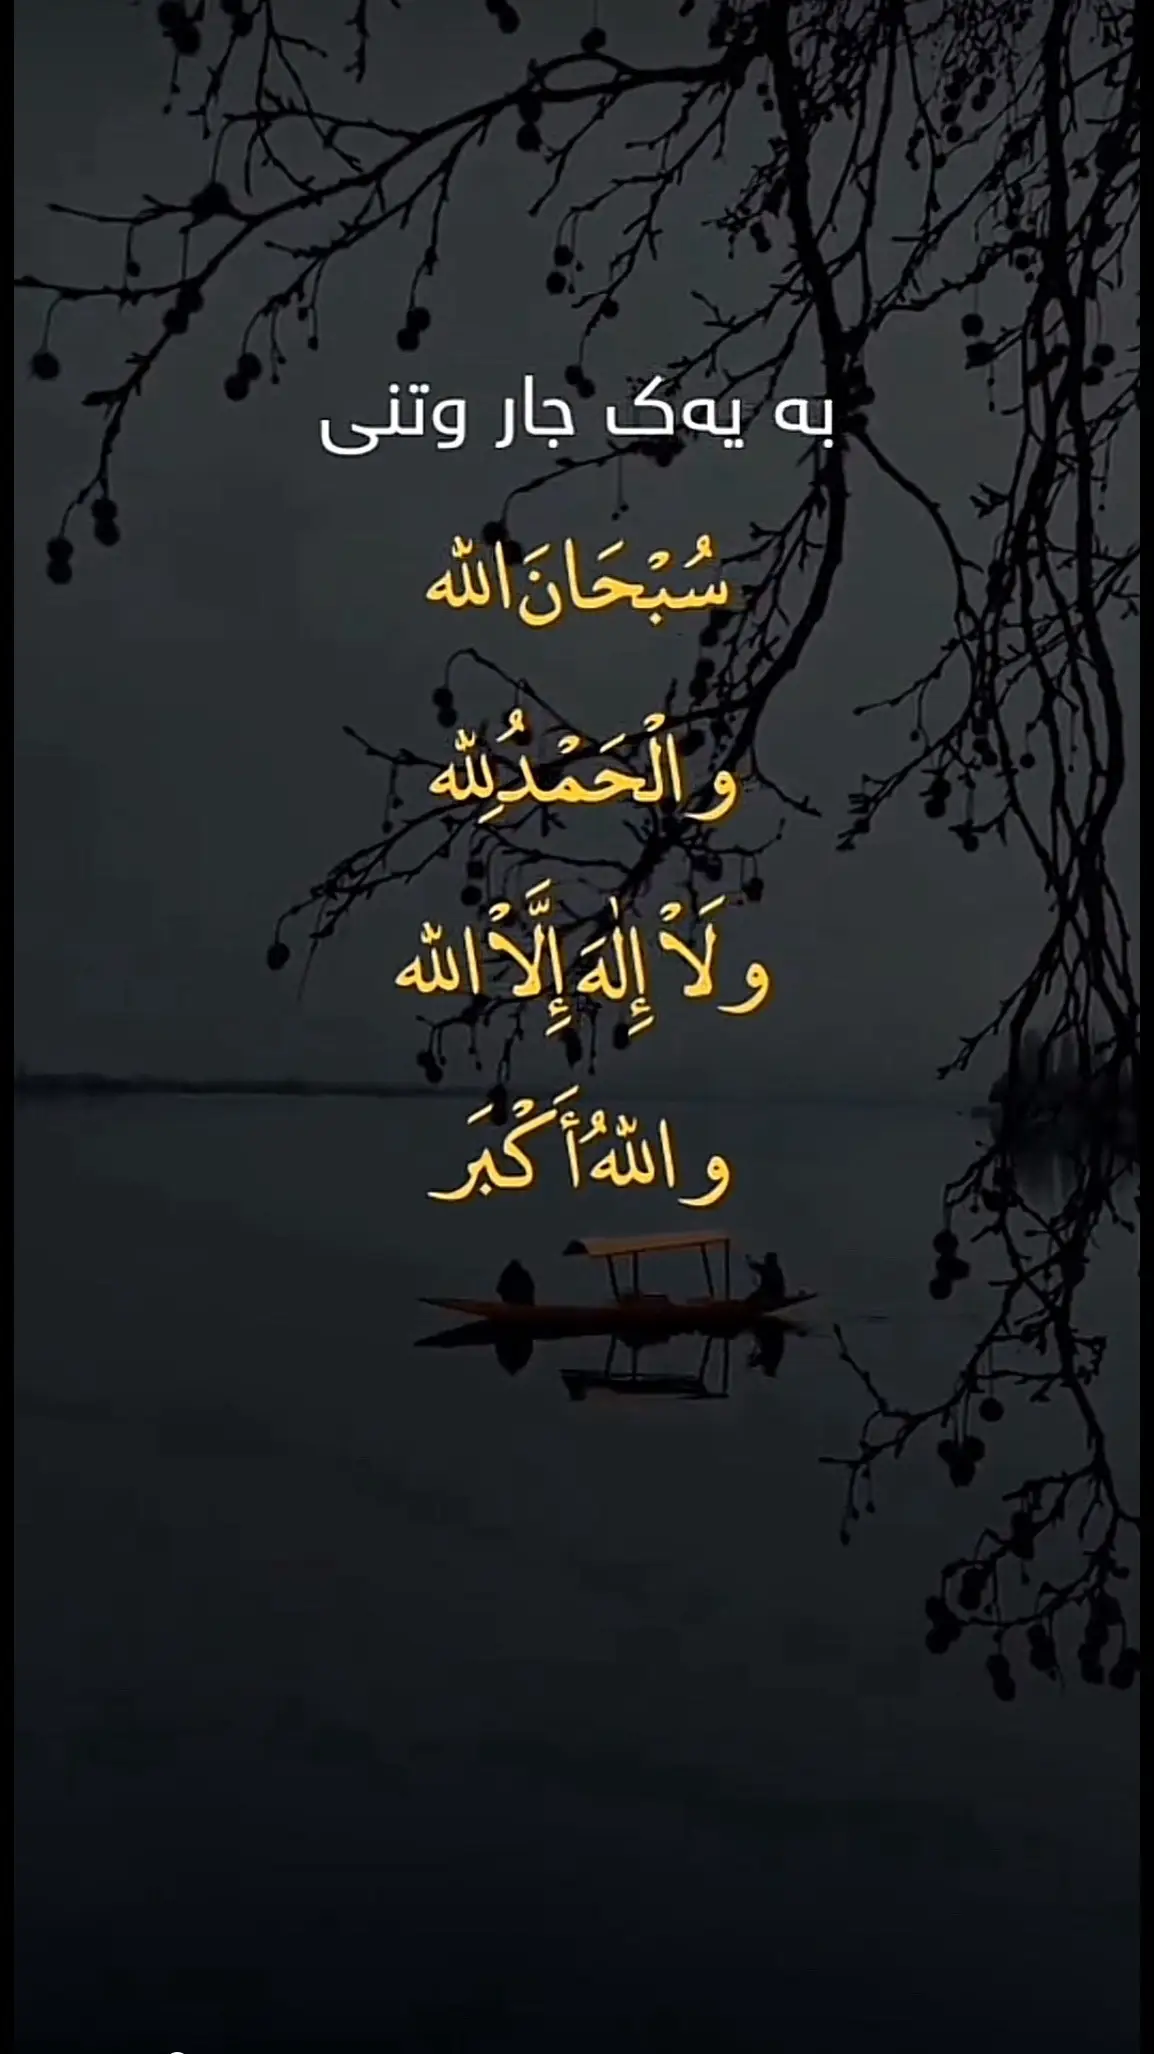 بە یەک جار وتنی
سُبْحَانَ الله
و الْحَمْدُ لِلله
و لَاْ إِلٰهَ إِلَّاْ الله
و اللهُ أَكْبَر